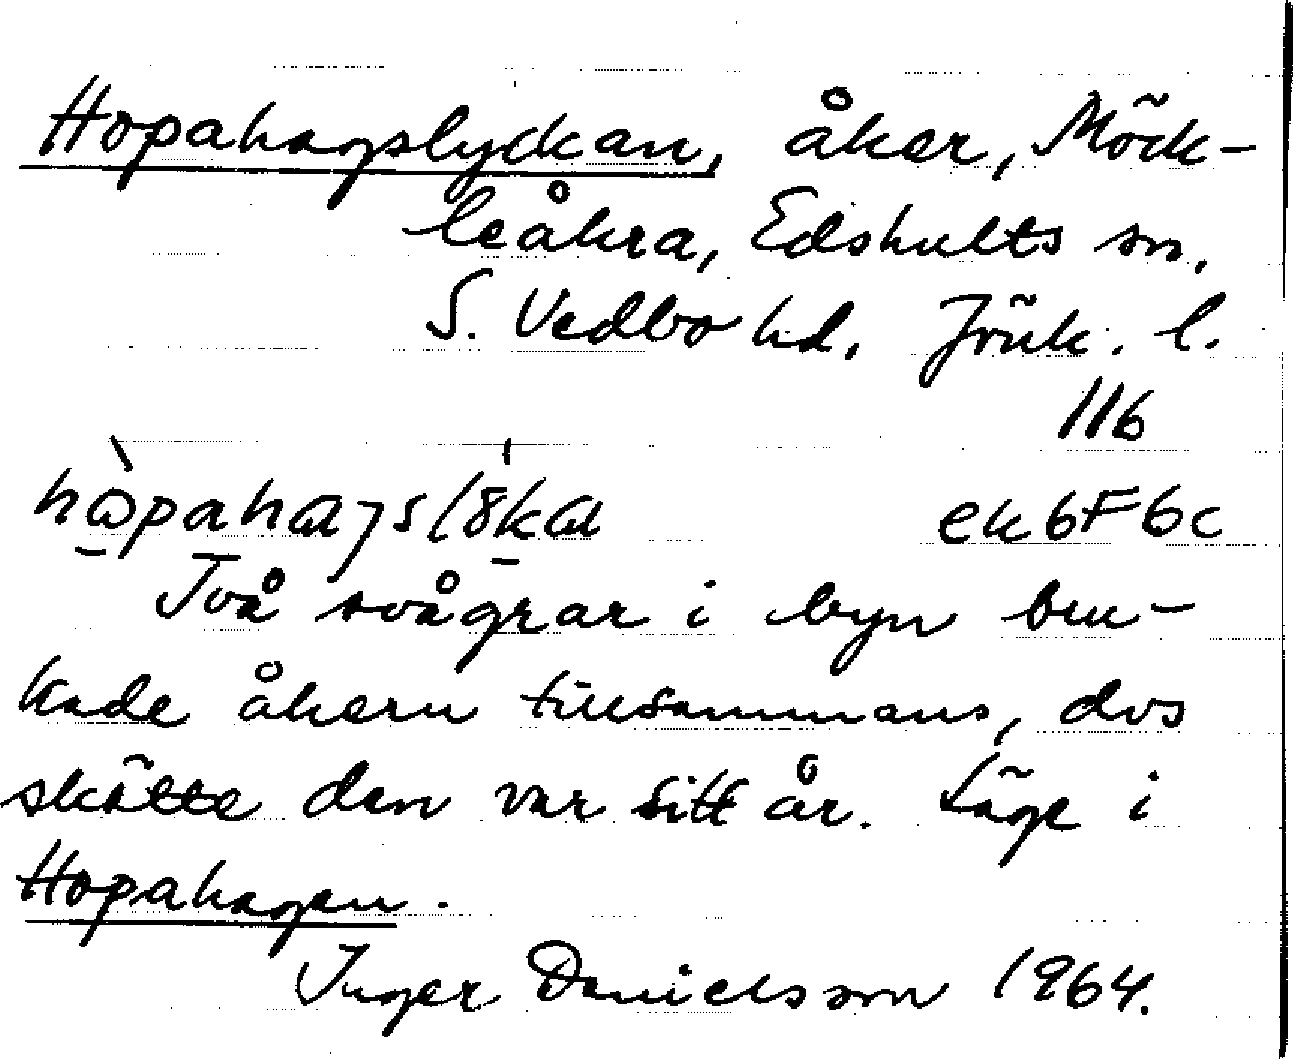 Hopahagslyckan, åker, Möck-
leåkra, Edshults sn,
S. Vedbo hd, Jönk. l.
116
ek 6F6c
Två svågrar i byn bru-
kade åkern tillsammans, dvs
skötte den var sitt år. Läge i
Hopahagen.
Inger Danielsson 1964.